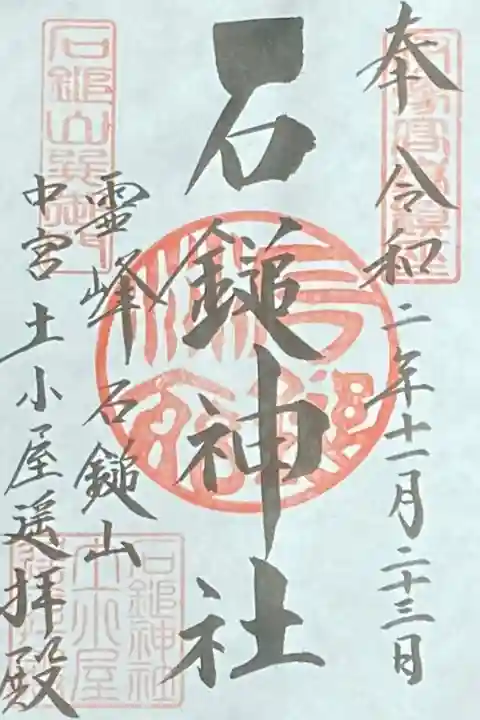 奉
令和二年十一月二十三日
石鎚神社
霊峰石鎚山
中宮土小屋遥拝殿
石鎚山巽御門
石鎚神社
土小屋
遥拝殿